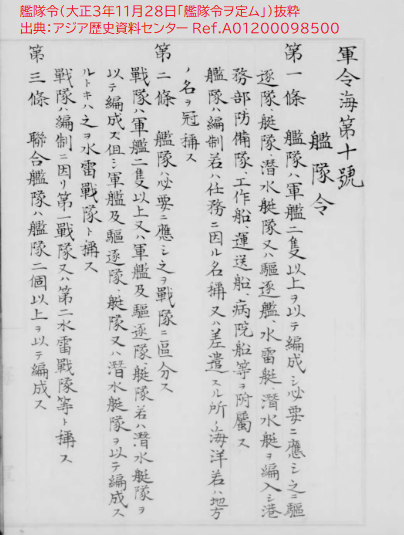 艦隊令（大正3年11月28日「艦隊令ヲ定ム」）抜粋
出典：アジア歴史資料センター Ref.A01200098500
軍令海第十號
艦隊令
第一條　艦隊ハ軍艦二隻以上ヲ以テ編成シ必要ニ應シ之ニ驅
逐隊、艇隊、潜水艇隊又ハ驅逐艦、水雷艇、潜水艇ヲ編入シ港
務部防備隊工作船、運送船、病院船等ヲ附屬ス
艦隊ハ編制若ハ仕務ニ因ル名稱又ハ差遣スル所ノ海洋若ハ地方
ノ名ヲ冠稱ス
第二條　艦隊ハ必要ニ應シ之ヲ戰隊ニ區分ス
戰隊ハ軍艦二隻以上又ハ軍艦及驅逐隊、艇隊若ハ潜水艇隊ヲ
以テ編成ス但シ軍艦及驅逐隊、艇隊又ハ潜水艇隊ヲ以テ編成ス
ルトキハ之ヲ水雷戰隊ト稱ス
戰隊ハ編制ニ因リ第一戰隊又ハ第二水雷戰隊等ト稱ス
第三條　聯合艦隊ハ艦隊二個以上ヲ以テ編成ス